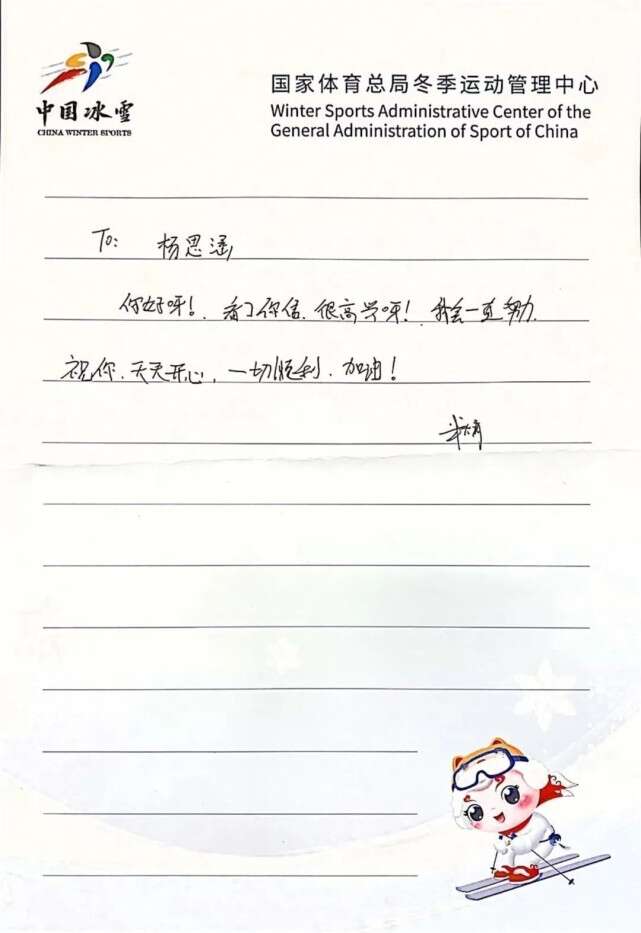 中国冰雪
CHINA WINTER SPORTS
国家体育总局冬季运动管理中心
Winter Sports Administrative Center of the
General Administration of Sport of China
To: 杨思涵
你好呀！看了你信，很高兴呀！我会一直努力.
祝你、天天开心，一切顺利、加油！